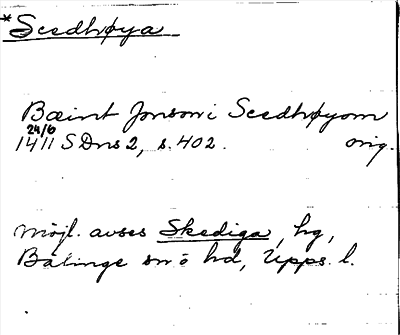 *Scedhøya
Bæint Jonson i Scedhøyom
24/6
1411 SDns 2, s. 402. orig.
Möjl. avses Skediga, hg,
Bälinge sn o hd, Upps. l.